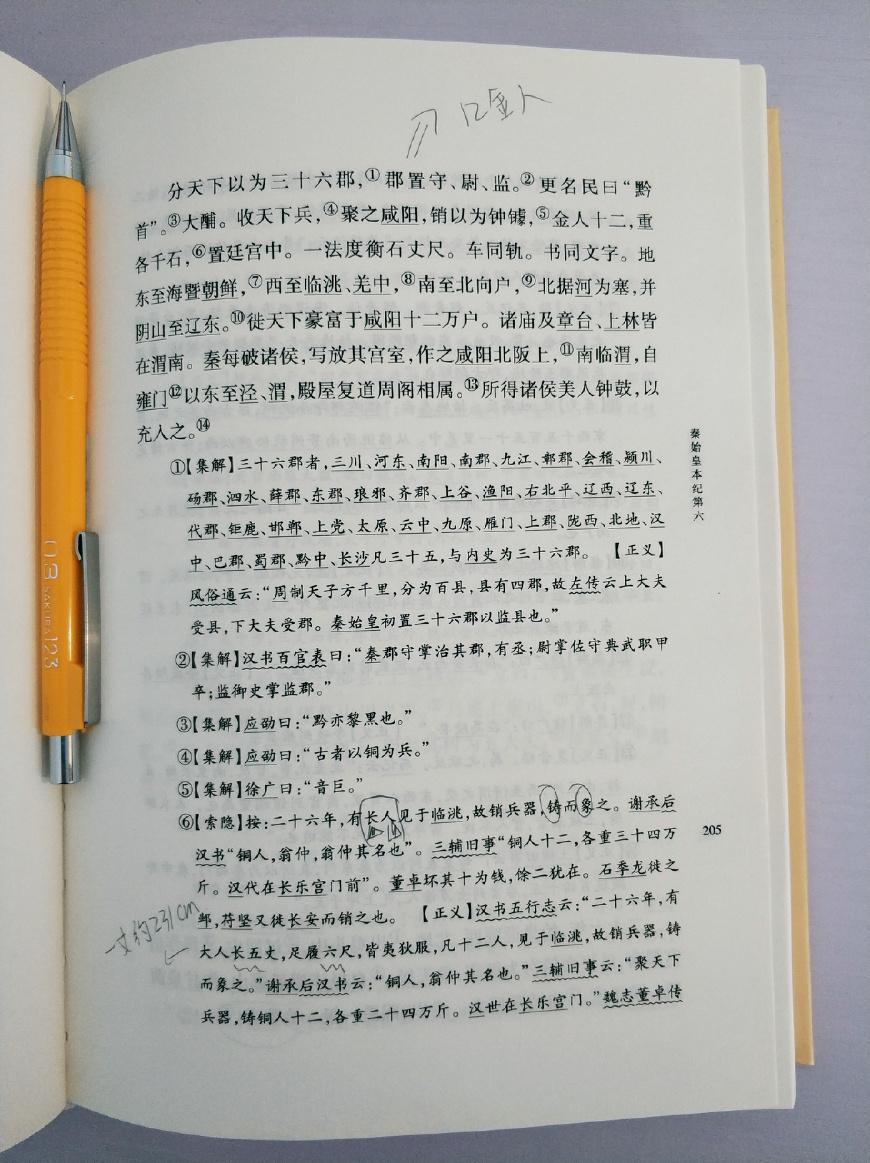 12金人
分天下以为三十六郡,①郡置守、尉、监。②更名民曰“黔
首”。③大酺。收天下兵,④聚之咸阳,销以为钟鐻,⑤金人十二,重
各千石,⑥置廷宫中。一法度衡石丈尺。车同轨。书同文字。地
东至海暨朝鲜,⑦西至临洮、羌中,⑧南至北向户,⑨北据河为塞,并
阴山至辽东。⑩徙天下豪富于咸阳十二万户。诸庙及章台、上林皆
在渭南。秦每破诸侯,写放其宫室,作之咸阳北阪上,⑪南临渭,自
雍门⑫以东至泾、渭,殿屋复道周阁相属。⑬所得诸侯美人钟鼓,以
充入之。⑭
①【集解】三十六郡者,三川、河东、南阳、南郡、九江、鄣郡、会稽、颍川、
砀郡、泗水、薛郡、东郡、琅邪、齐郡、上谷、渔阳、右北平、辽西、辽东、
代郡、钜鹿、邯郸、上党、太原、云中、九原、雁门、上郡、陇西、北地、汉
中、巴郡、蜀郡、黔中、长沙凡三十五,与内史为三十六郡。【正义】
风俗通云:“周制天子方千里,分为百县,县有四郡,故左传云上大夫
受县,下大夫受郡。秦始皇初置三十六郡以监县也。”
②【集解】汉书百官表曰:“秦郡守掌治其郡,有丞;尉掌佐守典武职甲
卒;监御史掌监郡。”
③【集解】应劭曰:“黔亦黎黑也。”
④【集解】应劭曰:“古者以铜为兵。”
⑤【集解】徐广曰:“音巨。”
⑥【索隐】按:二十六年,有长人见于临洮,故销兵器,铸而象之。谢承后
汉书“铜人,翁仲,翁仲其名也”。三辅旧事“铜人十二,各重三十四万
斤。汉代在长乐宫门前”。董卓坏其十为钱,馀二犹在。石季龙徙之
邺,苻坚又徙长安而销之也。【正义】汉书五行志云:“二十六年,有
大人长五丈,足履六尺,皆夷狄服,凡十二人,见于临洮,故销兵器,铸
而象之。”谢承后汉书云:“铜人,翁仲其名也。”三辅旧事云:“聚天下
兵器,铸铜人十二,各重二十四万斤。汉世在长乐宫门。”魏志董卓传
一丈约231cm
秦始皇本纪第六
205
0.3 SAKURA 123